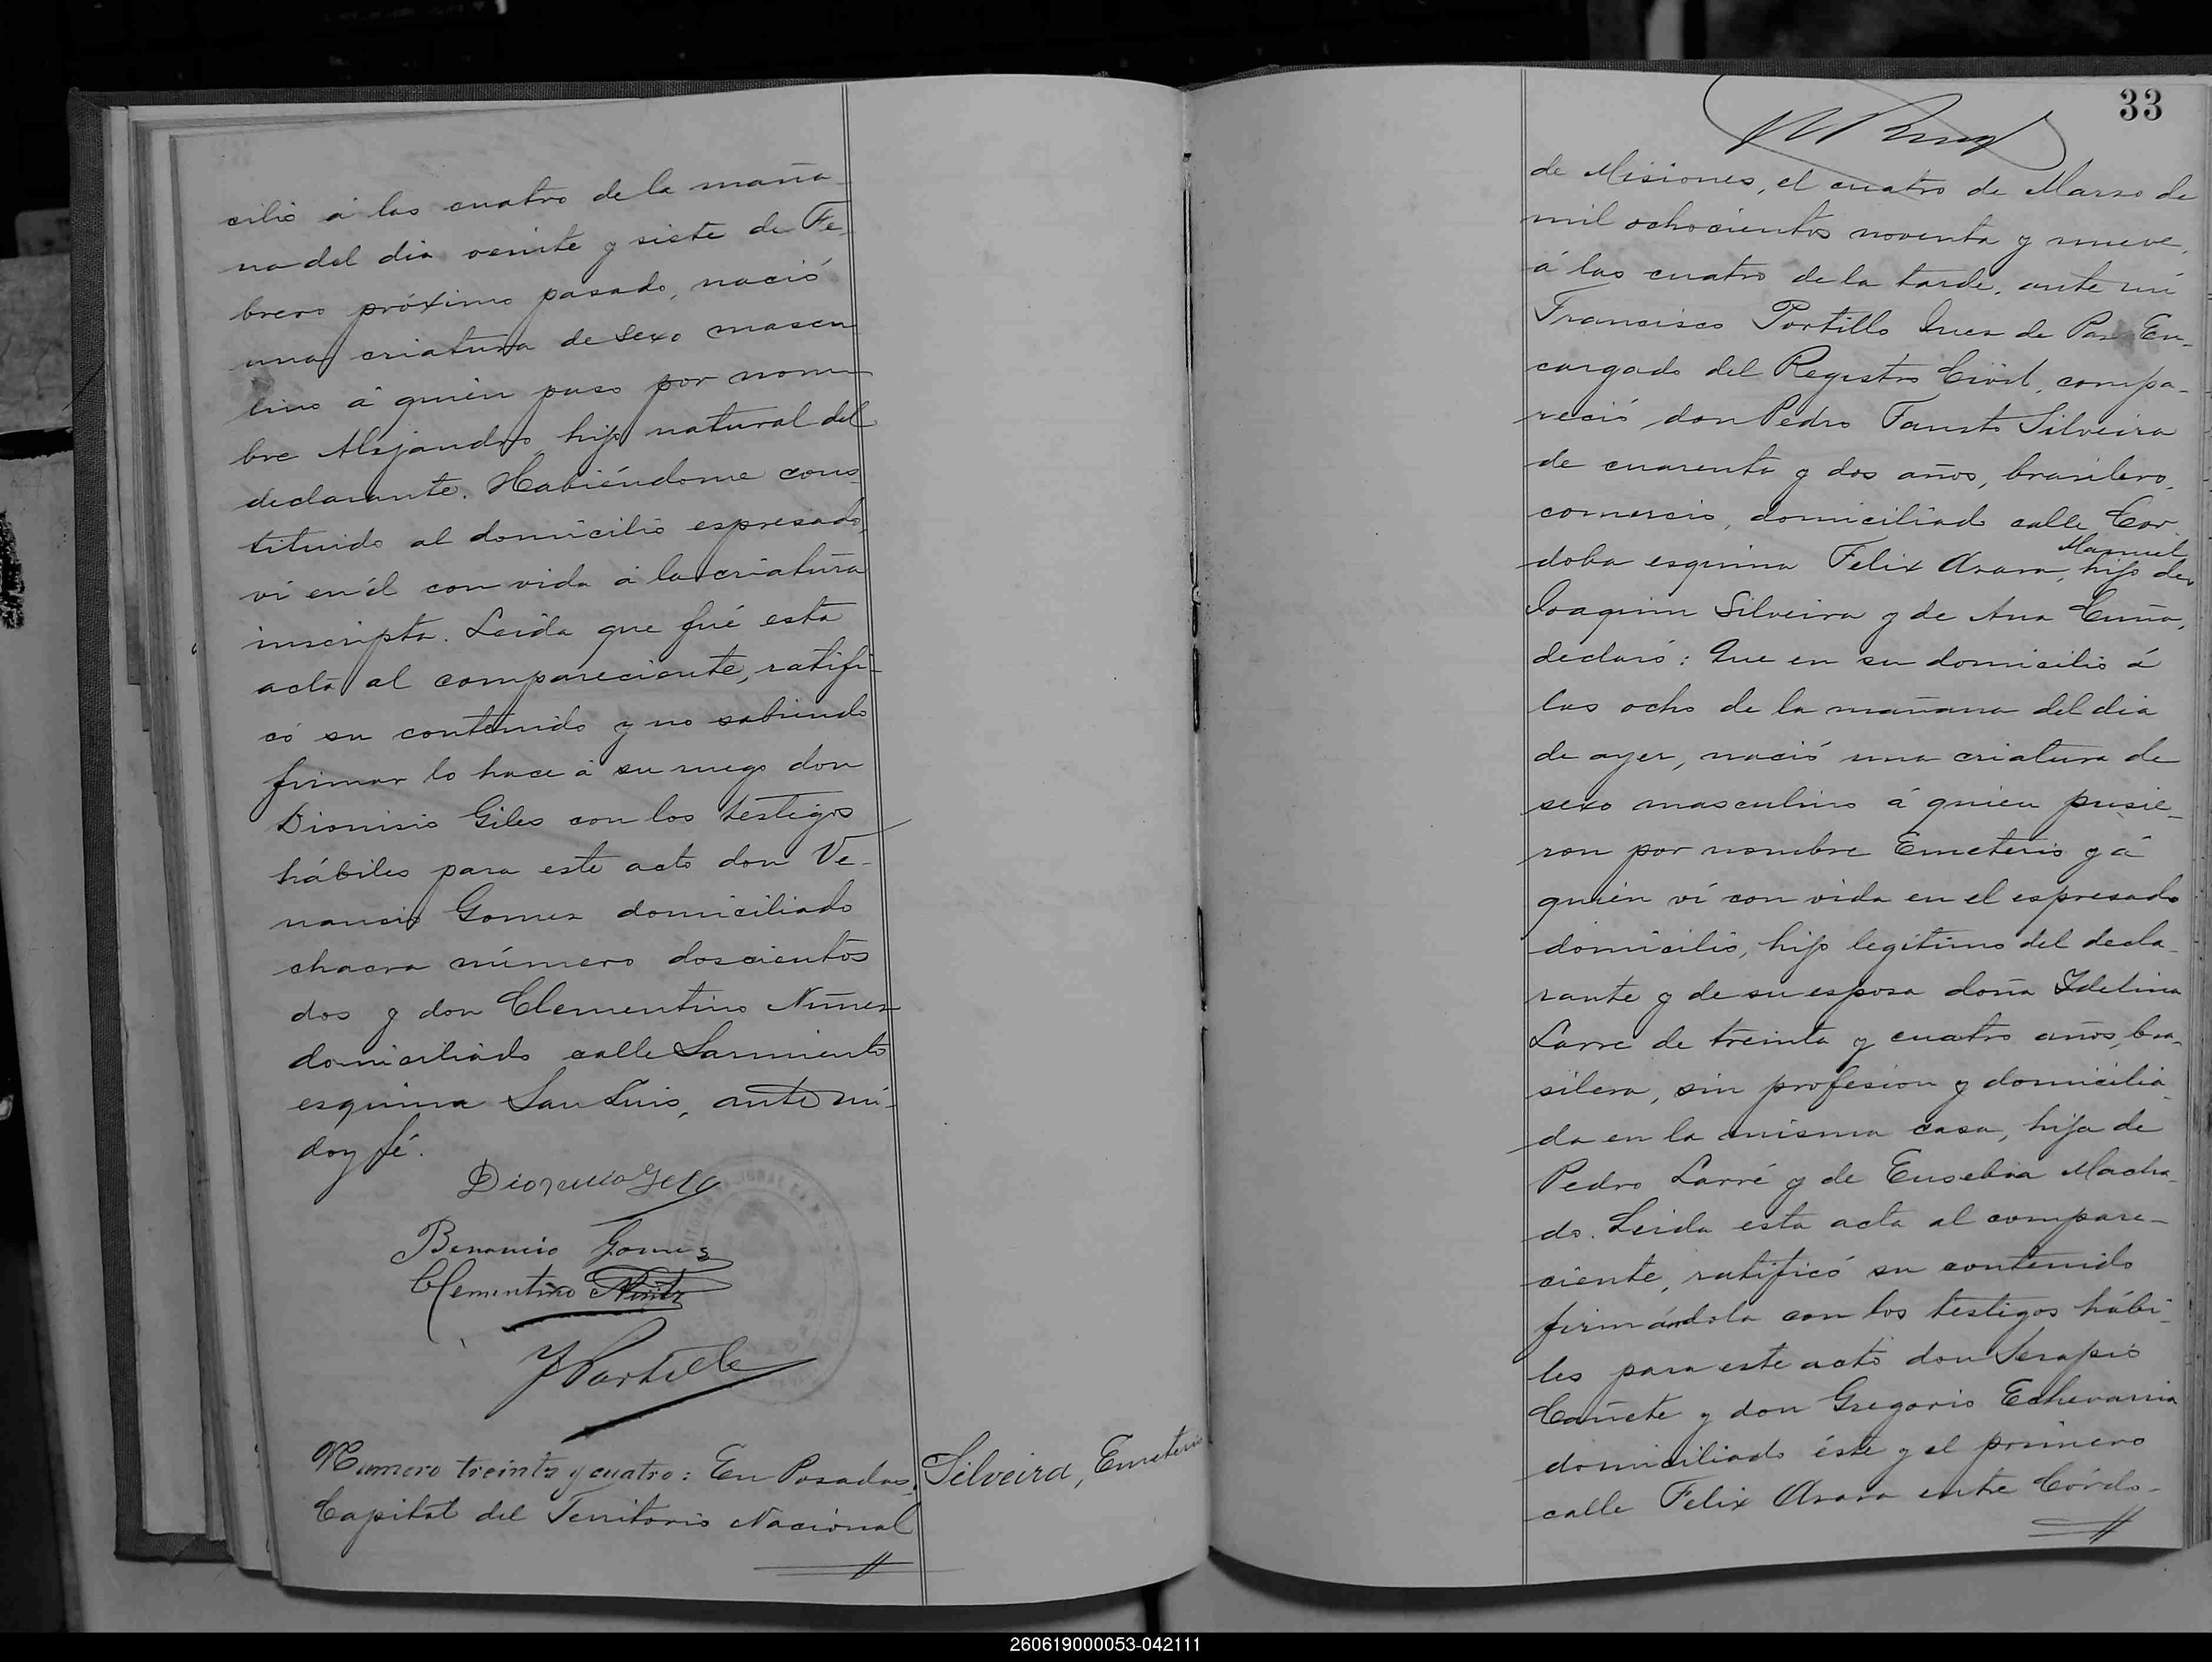 cilio á las cuatro de la maña-
na del dia veinte y siete de Fe-
brero próximo pasado, nació
una criatura de sexo mascu
lino á quien puso por nom-
bre Alejandro, hijo natural del
declarante. Habiéndome cons-
tituido al domicilio espresado,
ví en él con vida á la criatura
inscripta. Leida que fué esta
acta al compareciente, ratifi-
có su contenido y no sabiendo
firmar lo hace á su ruego don
Dionisio Giles con los testigos
hábiles para este acto don Ve-
nancio Gomez domiciliado
chacra número doscientos
dos y don Clementino Nuñez
domiciliado calle Sarmiento
esquina San Luis, ante mi
doy fé.
Benancio Gomes
Clementino
F Portillo
Numero treinta y cuatro: En Posadas,
Silveira, Emeterio
Capital del Territorio Nacional
33
de Misiones, el cuatro de Marzo de
mil ochocientos noventa y nueve,
á las cuatro de la tarde, ante mi
Francisco Portillo Juez de Paz En-
cargado del Registro Civil, compa-
reció don Pedro Fausto Silveira
de cuarenta y dos años, brasilero,
comercio, domiciliado calle Cor-
Manuel
doba esquina Felix Azara, hijo de
Joaquim Silveira y de Ana Cuña,
declaró: Que en su domicilio á
las ocho de la mañana del dia
de ayer, nació una criatura de
sexo masculino á quien pusie-
ron por nombre Emeterio y á
quien ví con vida en el espresado
domicilio, hijo legítimo del decla-
rante y de su esposa doña Idelina
Larre de treinta y cuatro años, bra-
silera, sin profesion y domicilia-
da en la misma casa, hija de
Pedro Larré y de Eusebia Macha-
do. Leida esta acta al compare-
ciente, ratificó su contenido
firmándola con los testigos hábi-
les para este acto don Serapio
Cañete y don Gregorio Echevarria
domiciliado éste y el primero
calle Felix Azara entre Córdo-
260619000053-042111